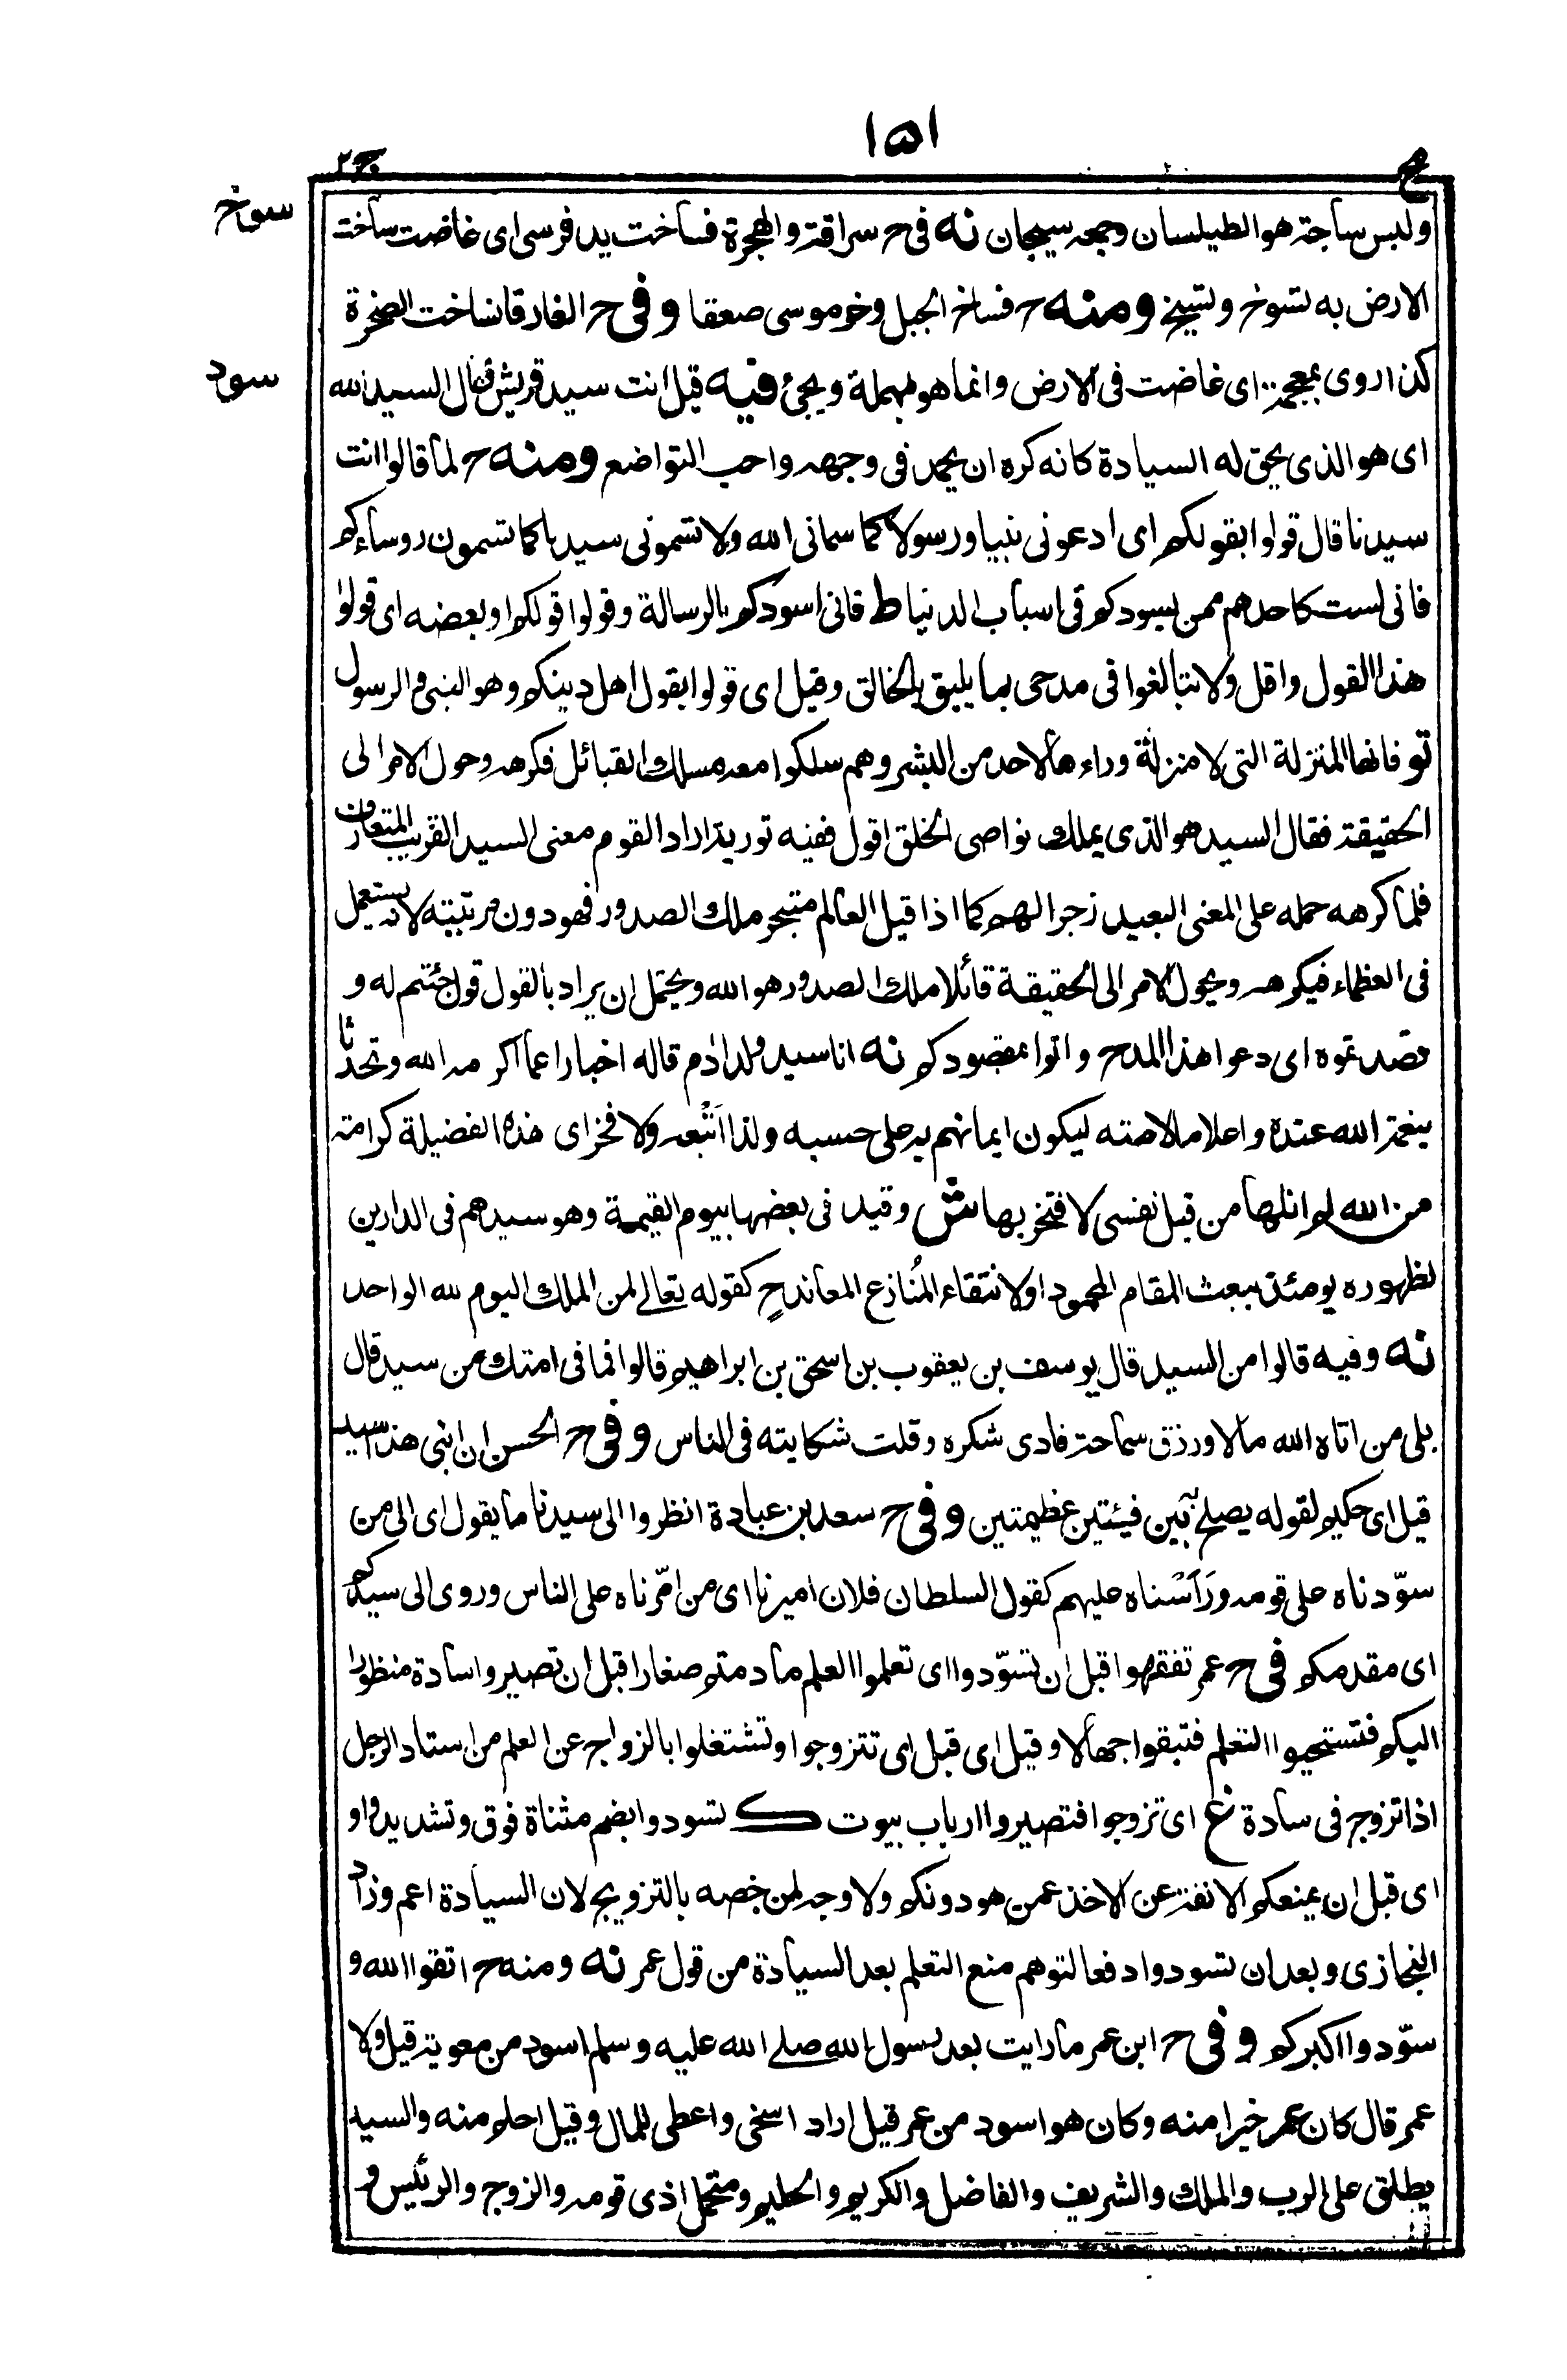 ١٥١
ج٢
سوخ
ولبس ساجة هو الطيلسان وجمعه سيجان نه فى ح سراقة والهجرة فساخت يد فرسى اى غاضت ساخت
الارض به تسوخ وتسيخ ومنه ح فساخ الجبل وخر موسى صعقا وفى ح الغار فانساخت الصخرة
سود
كذا روى بمعجمة اى غاضت فى الارض وانما هو بمهملة ويجئ فيه قيل انت سيد قريش فقال السيد الله
اى هو الذى يحق له السيادة كانه كره ان يحمد فى وجهه واحب التواضع ومنه ح لما قالوا انت
سيدنا قال قولوا بقولكم اى ادعونى نبيا ورسولا كما سمانى الله ولا تسمونى سيدا كما تسمون روساءكم
فانى لست كاحدهم ممن يسودكم فى اسباب الدنيا ط فانى اسودكم بالرسالة وقولوا قولكم او بعضه اى قولوا
هذا القول واقل ولا تبالغوا فى مدحى بما يليق بالخالق وقيل اى قولوا بقول اهل دينكم وهو النبى والرسول
تو فانها المنزلة التى لا منزلة وراءها لاحد من البشر وهم سلكوا معه مسلك القبائل فكرهه وحول الامر الى
الحقيقة فقال السيد هو الذى يملك نواصى الخلق اقول ففيه تورية اراد القوم معنى السيد القريب المتعارف
فلما كرهه حمله على المعنى البعيد زجرا لهم كما اذا قيل العالم متبحر ملك الصدور فهو دون مرتبته لانه يستعمل
فى العظماء فيكرهه ويحول الامر الى الحقيقة قائلا ملك الصدور هو الله ويحتمل ان يراد بالقول قول جئتم له و
قصدتموه اى دعوا هذا المدح واتوا بمقصودكم نه انا سيد ولد ادم قاله اخبارا عما اكرمه الله وتحدثا
بنعمة الله عنده واعلاما لامته ليكون ايمانهم به على حسبه ولذا اتبعه ولا فخر اى هذه الفضيلة كرامة
من الله لم انلها من قبل نفسى لافتخر بها ش وقيد فى بعضها بيوم القيمة وهو سيدهم فى الدارين
لظهوره يومئذ ببعث المقام المحمود او لانتفاء المُنازع المعاند ح كقوله تعالى لمن الملك اليوم لله الواحد
نه وفيه قالوا من السيد قال يوسف بن يعقوب بن اسحق بن ابراهيم قالوا فما فى امتك من سيد قال
بلى من اتاه الله مالا ورزق سماحة فادى شكره وقلت شكايته فى الناس وفى ح الحسن ان ابنى هذا سيد
قيل اى حكيم لقوله يصلح بين فيئتين عظيمتين وفى ح سعد بن عبادة انظروا الى سيدنا ما يقول اى الى من
سوّدناه على قومه ورَأسْناه عليهم كقول السلطان فلان اميرنا اى من امّرناه على الناس وروى الى سيدكم
اى مقدمكم فى ح عمر تفقهوا قبل ان تسوّدوا اى تعلموا العلم ما دمتم صغارا قبل ان تصيروا سادة منظورا
اليكم فتستحيوا التعلم فتبقوا جهالا وقيل اى قبل اى تتزوجوا وتشتغلوا بالزواج عن العلم من استاد الرجل
اذا تزوج فى سادة غ اى تزوجوا فتصيروا ارباب بيوت ك تسودوا بضم مثناة فوق وتشديد واو
اى قبل ان يمنعكم الانفة عن الاخذ عمن هو دونكم ولا وجه لمن خصه بالتزويج لان السيادة اعم وزاد
البخارى وبعد ان تسودوا دفعا لتوهم منع التعلم بعد السيادة من قول عمر نه ومنه ح اتقوا الله و
سوّدوا اكبركم وفى ح ابن عمر ما رايت بعد رسول الله صلى الله عليه وسلم اسود من معوية قيل ولا
عمر قال كان عمر خيرا منه وكان هو اسود من عمر قيل اراد اسخى واعطى للمال وقيل احلم منه والسيد
يطلق على الرب والملك والشريف والفاضل والكريم والحليم ومتحمل اذى قومه والزوج والرئيس و